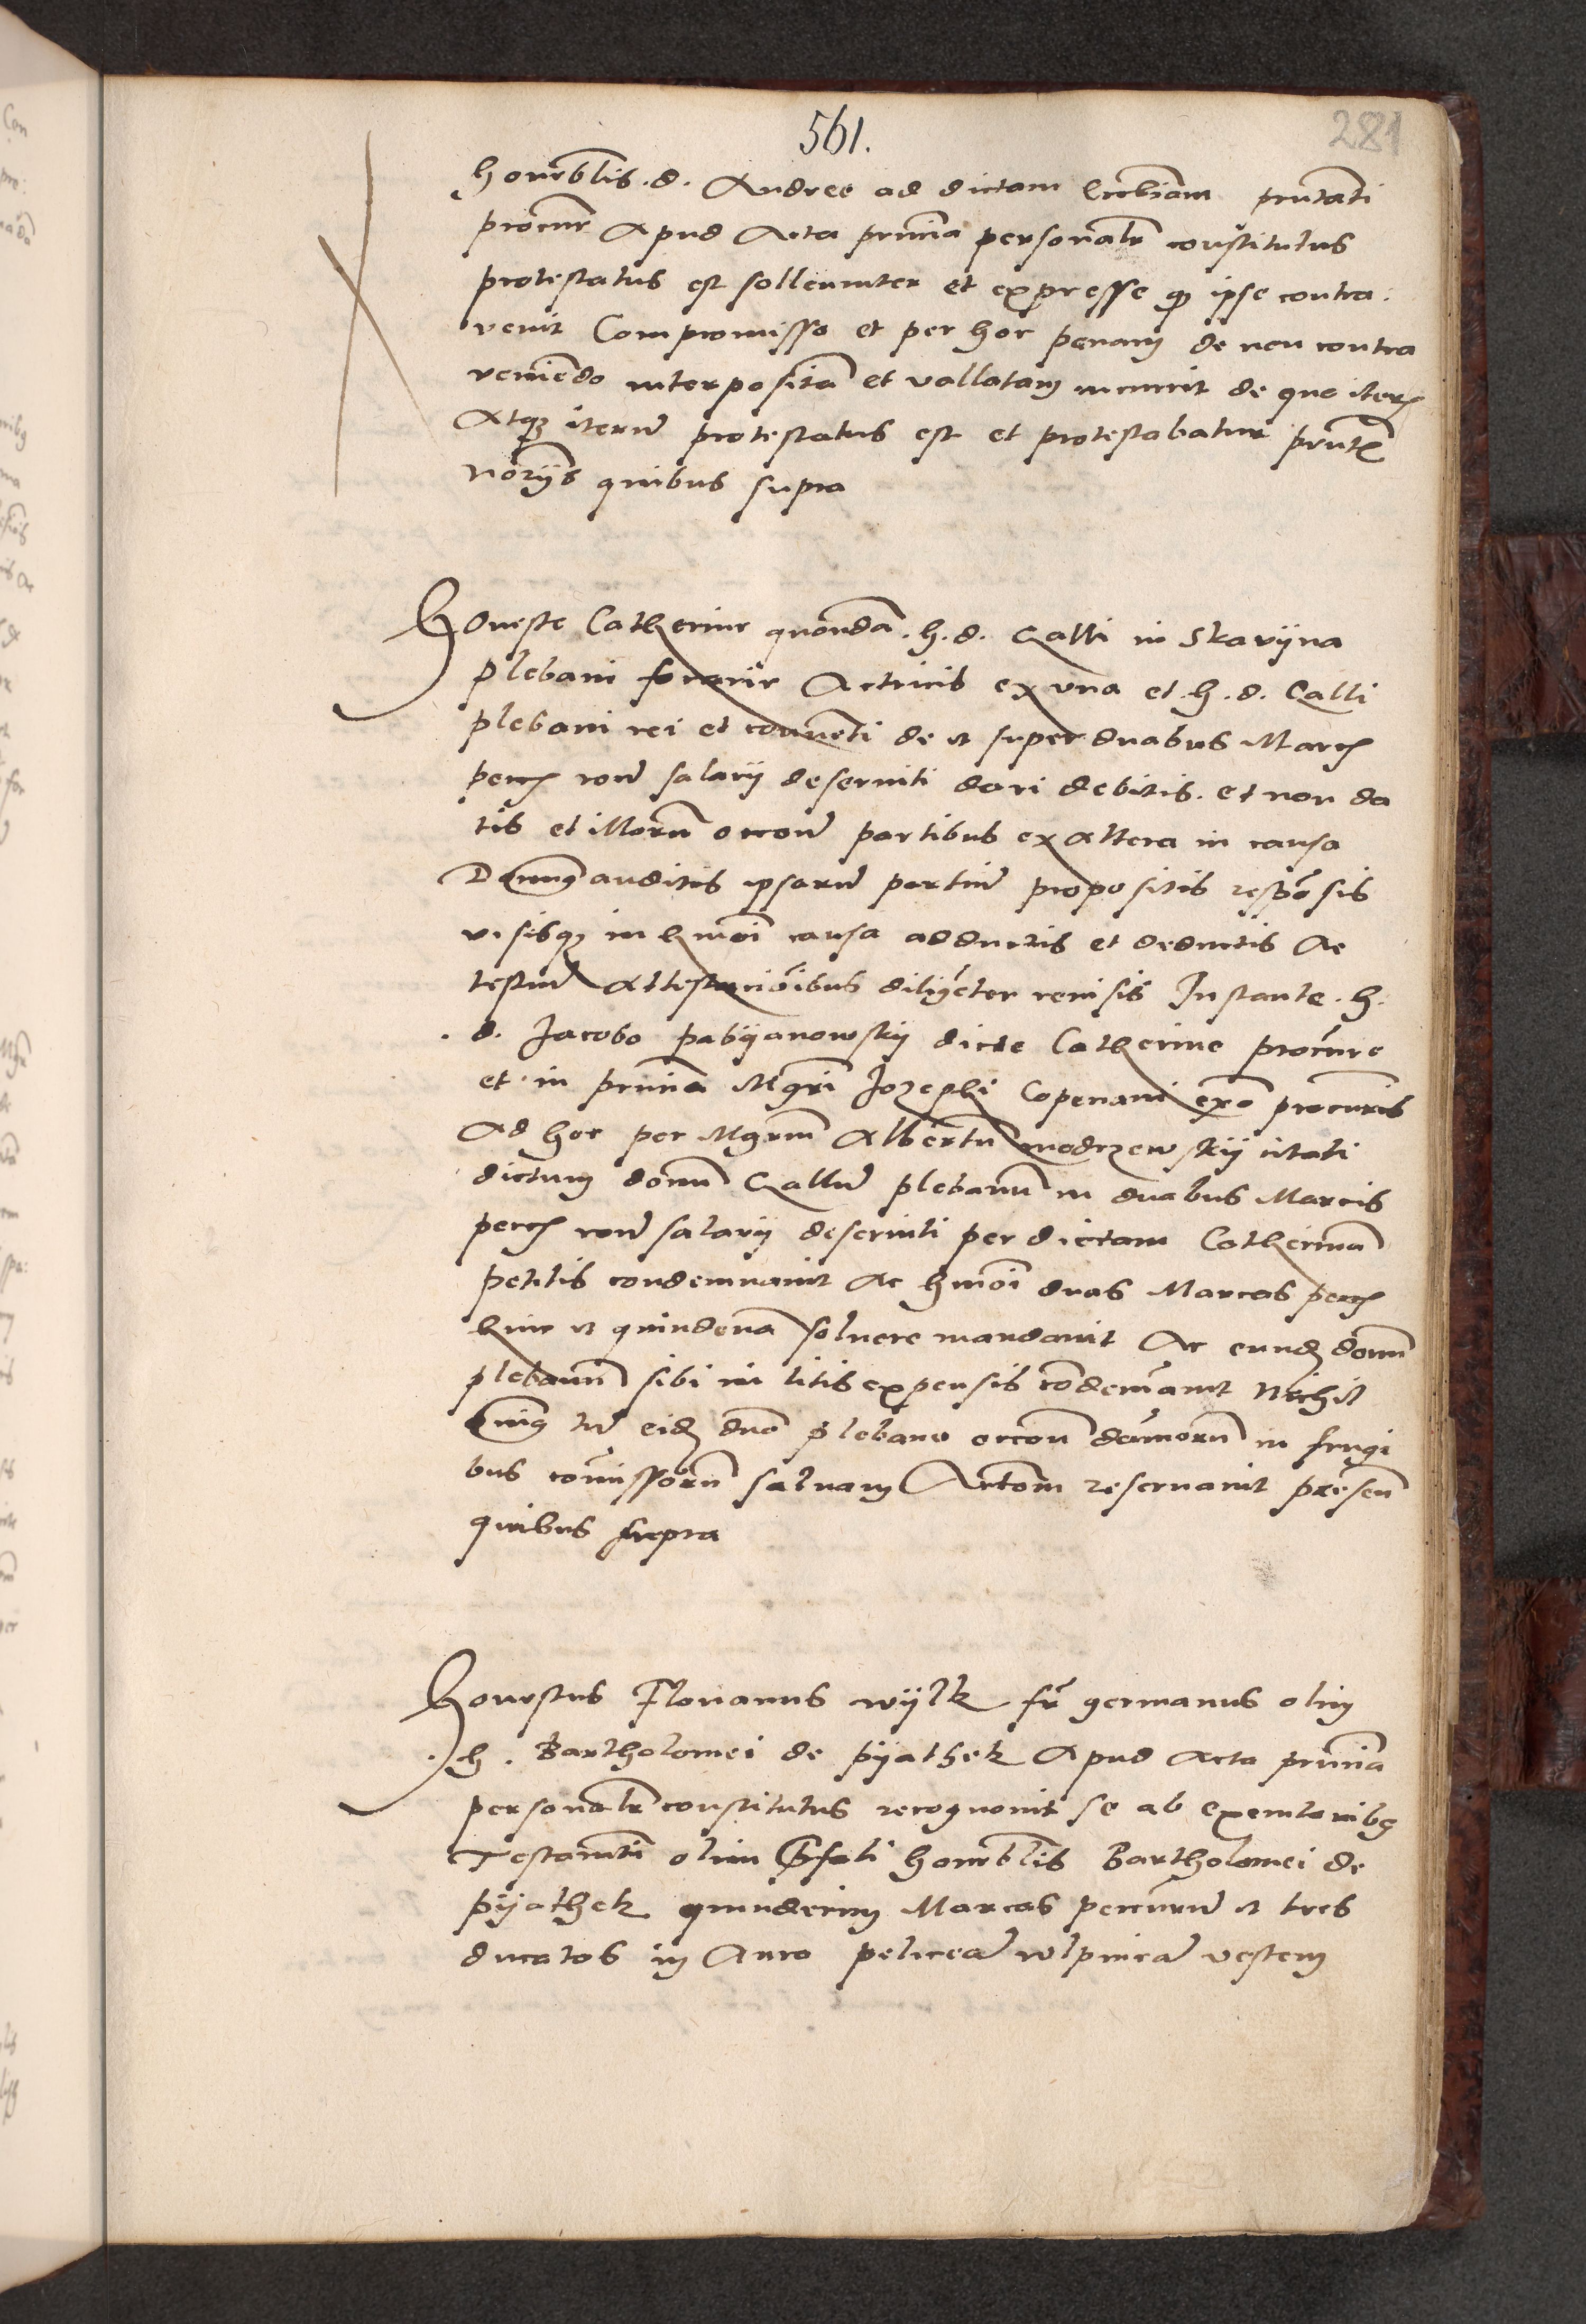 561.
281
honorblis .d. Andree ad dictam Ecclesiam pntati
procur Apud Acta pnncia personalr constitutus
protestatus est sollenniter et expresse qd ipse contra
venit Compromisso et per hoc penam de non contra
veniendo interposita et vallatam incurrit de quo iter
Atqz iteru protestatus est et protestabatur pntibus
noriis quibus supra
Honeste Catherine quonda .h.d. Galli in Skariina
plebani Actricis ex una et .h.d. Galli
plebani rei et conventi de et super duabus Marcis
pecc roe salarii deserviti dari debitis et non da
tis et illorum occone partibus ex altera in causa
auditis ipsaru partiu propositis responsis
visisqz in hmoi causa adductis et deductis Ac
testiu attestacionibus diligenter revisis Instante .h.
d. Jacobo pabiianowskii dicte Catherine procure
et in pnncia Mgri Jozephi Copenani procuris
Ad hoc per Mgrum Albertu modrzewskii citati
dictum domnu Gallu plebanu in duabus Marcis
pecc roe salarii deserviti per dictam Catherina
petitis condemnavit Ac hmoi duas Marcas pecc
hinc et quindena solvere mandavit Ac eundem domnu
plebanu sibi in litis expensis condemnavit Nichil
tn eidem dno plebano occone damnoru in frugi
bus comissoru salvam Actom reservavit presen
quibus supra
Honestus Florianus wijlk fr germanus olim
.h. Bartholomei de pijathek Apud Acta pnncia
personalr constitutus recognovit se ab executoribus
Testamti olim honorblis Bartholomei de
pijathek quindecim Marcas pecuniaru et tres
ducatos in Auro peliceа vulpinea vestem